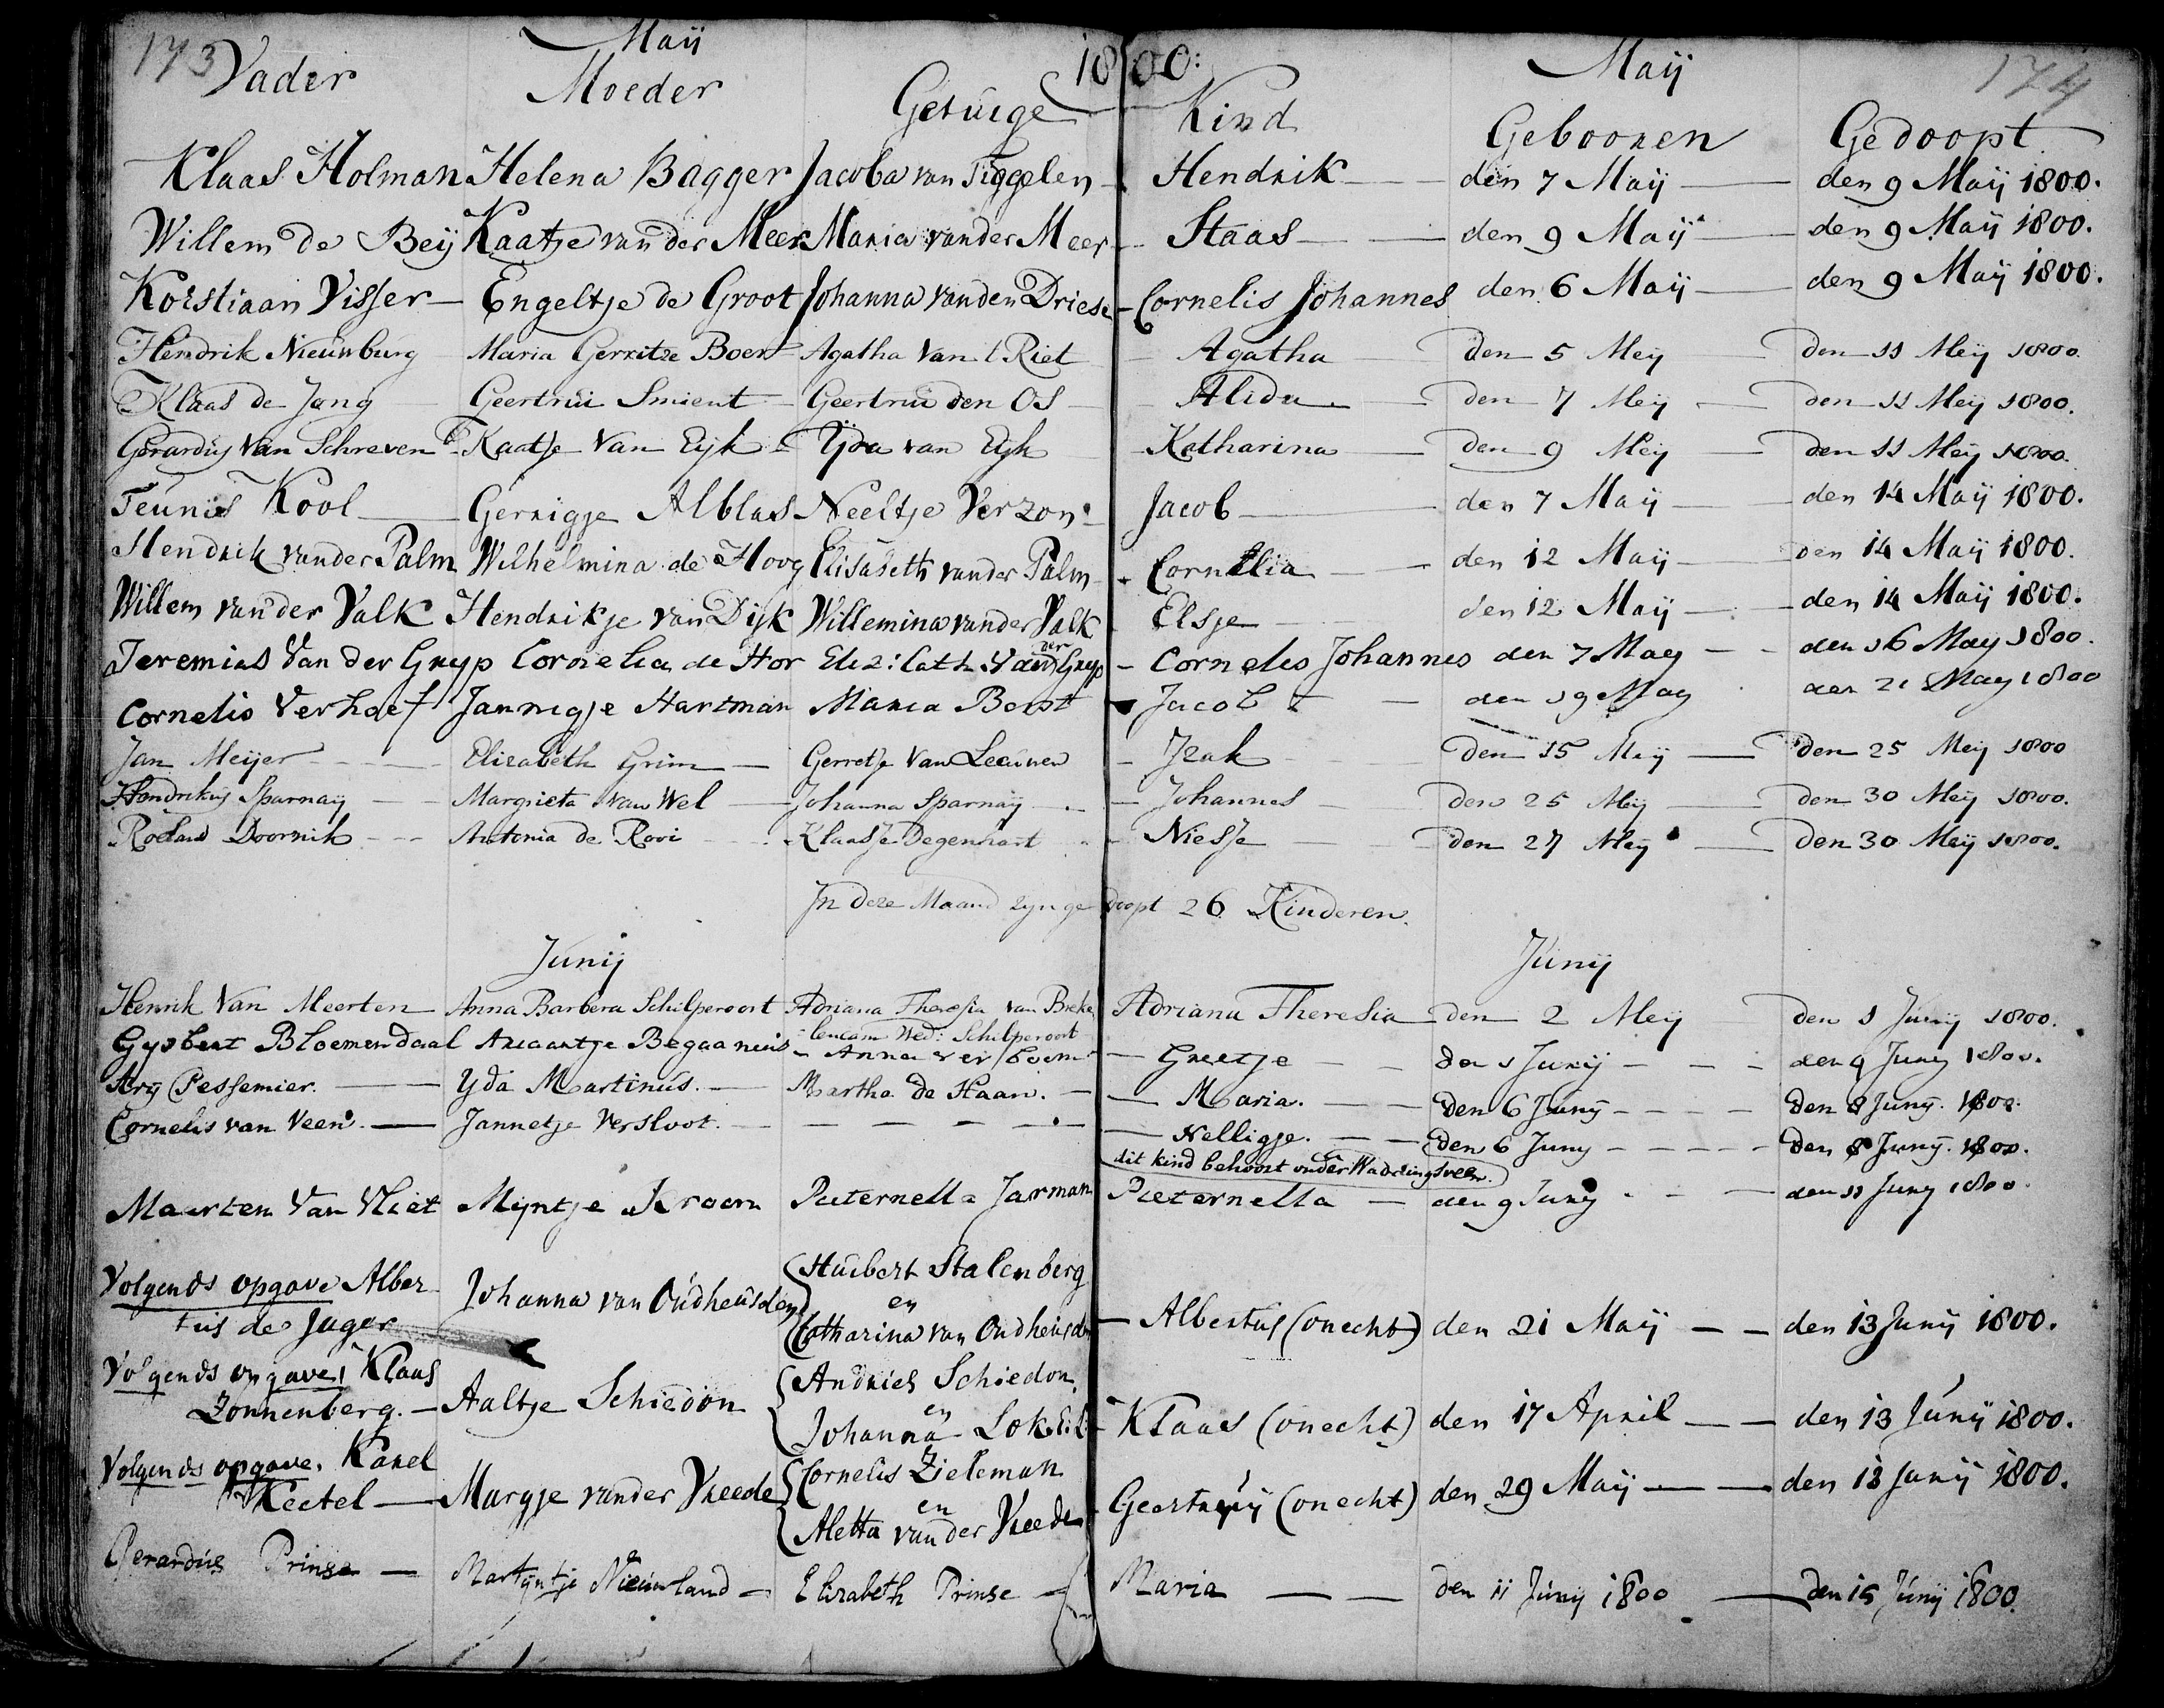 173 Maij 1800: Maij 174
Vader Moeder Getuige Kind Geboonen Gedoopt
Klaas Holman Helena Bagger Jacoba van Tiggelen Hendrik den 7 Maij den 9 Maij 1800.
Willem De Beij Kaatje van der Meer Maria vander Meer Staas den 9 Maij den 9 Maij 1800.
Korstiaan Visser Engeltje de Groot Johanna vanden Driese Cornelis Johannes den 6 Maij den 9 Maij 1800.
Hendrik Nieuwburg Maria Gerritze Boer Agatha Van t Riet Agatha Den 5 Meij Den 11 Meij 1800.
Klaas de Jong Geertrui Smient Geertrui den Os Alida Den 7 Meij Den 11 Meij 1800.
Gerardus Van Schreven Kaatje Van Eijk Ijda van Eijk Katharina Den 9 Meij Den 11 Meij 1800.
Teunis Kool Gerrigje Alblas Neeltje Verzon Jacob den 7 Maij den 14 Maij 1800.
Hendrik vander Palm Wilhelmina de Hoog Elisabeth vander Palm Cornelia den 12 Maij den 14 Maij 1800.
Willem van der Valk Hendrikje van Dijk Willemina vander Valk Elsje den 12 Maij den 14 Maij 1800.
Jeremias Van der Gryp Cornelia de Hor Eliz: Cath. Vander Gryp Cornelis Johannes den 7 May den 16 May 1800.
Cornelis Verhoef Jannigje Hartman Maria Borst Jacob den 19 May den 21 May 1800
Jan Meijer Elizabeth Grim Gerretje Van Leeuwen Izak Den 15 Meij Den 25 Meij 1800
Hendrikus Sparnaij Margrieta van Wel Johanna Sparnaij Johannes Den 25 Meij Den 30 Meij 1800.
Roeland Doornik Antonia de Rooi Klaasje Degenhart Niesje Den 27 Meij Den 30 Meij 1800.
In deze Maand zyn gedoopt 26 Kinderen.
Junij Junij
Henrik Van Meerten Anna Barbera Schilperoort Adriana Theresia van Breke Adriana Theresia Den 2 Meij Den 1 Junij 1800.
lencam Wed: Schilperoort
Gysbert Bloemendaal Ariaantje Begaanius Anna ver boom Grietje den 1 Junij den 4 Juny 1800.
Ary Pessemier. Yda Martinus. Martha de Haan. Maria. Den 6 Juny Den 8 Juny. 1800.
Cornelis van Veen. Jannetje Versloot. Nelligje. Den 6 Juny Den 8 Juny. 1800.
dit kind behoort onder Waddingsveen.
Maarten Van Vliet Mijntje Kroon Pieternella Jarman Pieternella den 9 Juny den 11 Juny 1800.
Volgends opgave Alber
tus de Jager Johanna van Oudheusden Huibert Stalenberg
en
Catharina van Oudheusden Albertus (onecht) den 21 Maij den 13 Junij 1800.
Volgends opgave, Klaas
Zonnenberg. Aaltje Schiedon Andries Schiedon,
en
Johanna Klaas (onecht) den 17 April den 13 Junij 1800.
Volgends opgave, Karel
Keetel Margje vander Vreede Cornelis Zieleman
en
Aletta van der Vreede Geertruij (onecht) den 29 Maij den 13 Junij 1800.
Gerardus Prinse Martyntje Nieuwland Elizabeth Prinse Maria den 11 Junij 1800 den 15 Junij 1800.